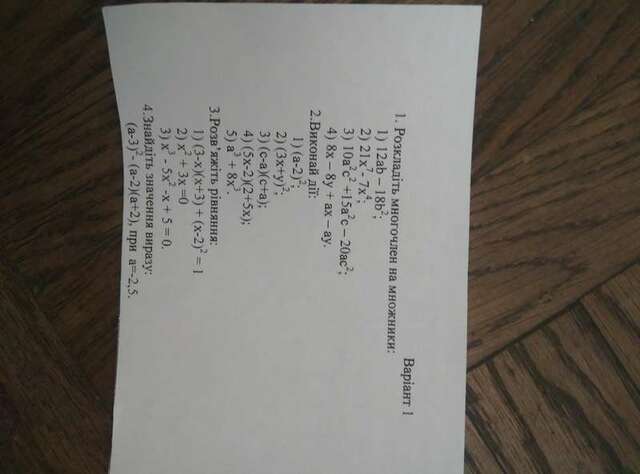 Варіант 1
1. Розкладіть многочлен на множники:
1) 12ab – 18b²;
2) 21x⁷-7x⁴;
3) 10a²c² +15a²c – 20ac²;
4) 8x – 8y + ax – ay.
2.Виконай дії:
1) (a-2)²;
2) (3x+y)²;
3) (c-a)(c+a);
4) (5x-2)(2+5x);
5) a³ + 8x³.
3.Розв'яжіть рівняння:
1) (3-x)(x+3) + (x-2)² = 1
2) x² + 3x =0
3) x³ - 5x² -x + 5 = 0.
4.Знайдіть значення виразу:
(a-3)²- (a-2)(a+2), при a=-2,5.